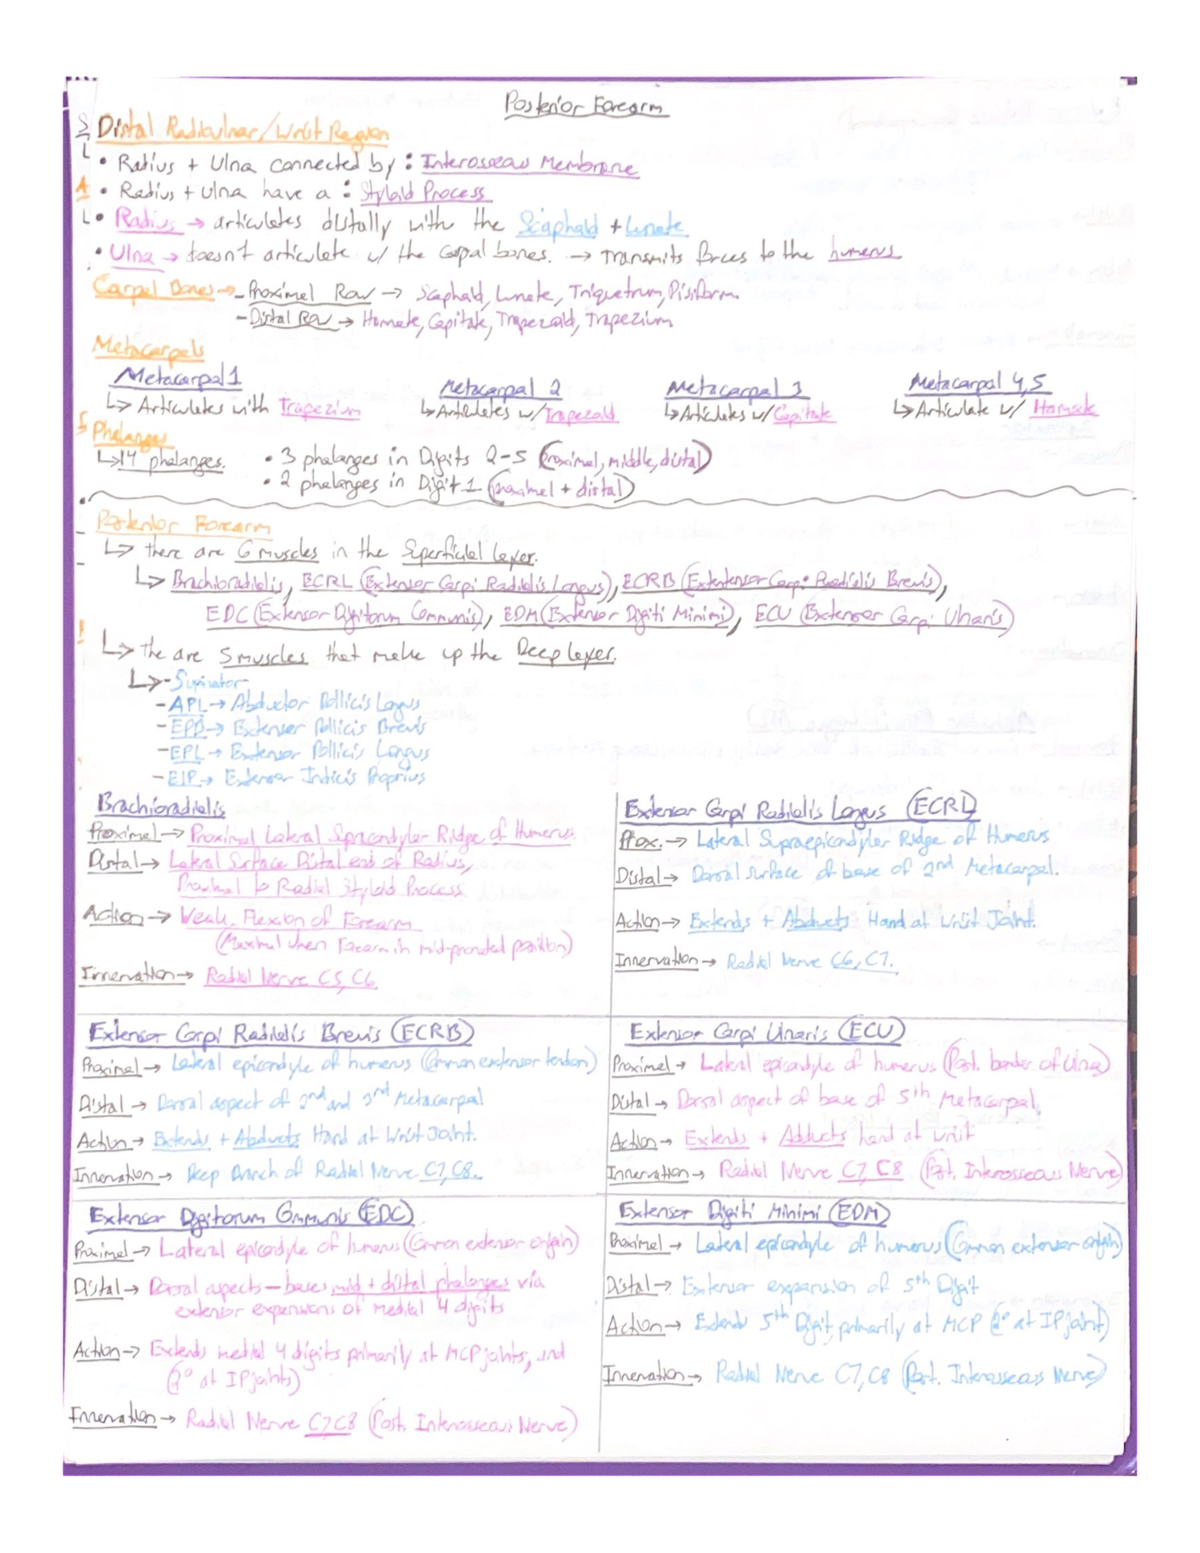 Posterior Forearm
Distal Radioulnar/Wrist Region
• Radius + Ulna connected by: Interosseous Membrane
• Radius + Ulna have a: Styloid Process
• Radius → articulates distally with the Scaphoid + Lunate
• Ulna → doesn't articulate w/ the carpal bones. → transmits forces to the humerus
Carpal Bones → - Proximal Row → Scaphoid, Lunate, Triquetrum, Pisiform.
- Distal Row → Hamate, Capitate, Trapezoid, Trapezium
Metacarpals
Metacarpal 1 Metacarpal 2 Metacarpal 3 Metacarpal 4,5
↳ Articulates with Trapezium ↳ Articulates w/ Trapezoid ↳ Articulates w/ Capitate ↳ Articulate w/ Hamate
Phalanges
↳ 14 phalanges. • 3 phalanges in Digits 2-5 (proximal, middle, distal)
• 2 phalanges in Digit 1 (proximal + distal)
Posterior Forearm
↳ there are 6 muscles in the Superficial layer.
↳ Brachioradialis, ECRL (Extensor Carpi Radialis Longus), ECRB (Extentensor Carpi Radialis Brevis),
EDC (Extensor Digitorum Communis), EDM (Extensor Digiti Minimi), ECU (Extensor Carpi Ulnaris)
↳ the are 5 muscles that make up the Deep layer.
↳ - Supinator
- APL → Abductor Pollicis Longus
- EPB → Extensor Pollicis Brevis
- EPL → Extensor Pollicis Longus
- EIP → Extensor Indicis Proprius
Brachioradialis
Proximal → Proximal Lateral Supracondylar Ridge of Humerus.
Distal → Lateral Surface Distal end of Radius,
Proximal to Radial Styloid Process
Action → Weak Flexion of Forearm
(Maximal when Forearm in mid-pronated position)
Innervation → Radial Nerve C5, C6
Extensor Carpi Radialis Longus (ECRL)
Prox. → Lateral Supraepicondyler Ridge of Humerus
Distal → Dorsal surface of base of 2nd Metacarpal.
Action → Extends + Abducts Hand at Wrist Joint.
Innervation → Radial Nerve C6, C7.
Extensor Carpi Radialis Brevis (ECRB)
Proximal → Lateral epicondyle of humerus (Common extensor tendon)
Distal → Dorsal aspect of 2nd and 3rd Metacarpal
Action → Extends + Abducts Hand at Wrist Joint.
Innervation → Deep Branch of Radial Nerve C7, C8.
Extensor Carpi Ulnaris (ECU)
Proximal → Lateral epicondyle of humerus (Post. border of Ulna)
Distal → Dorsal aspect of base of 5th Metacarpal
Action → Extends + Adducts hand at wrist
Innervation → Radial Nerve C7, C8 (Post. Interosseous Nerve)
Extensor Digitorum Communis (EDC)
Proximal → Lateral epicondyle of humerus (Common extensor origin)
Distal → Dorsal aspects - bases mid + distal phalanges via
extensor expansions of medial 4 digits
Action → Extends medial 4 digits primarily at MCP joints, and
(2° at IP joints)
Innervation → Radial Nerve C7, C8 (Post. Interosseous Nerve)
Extensor Digiti Minimi (EDM)
Proximal → Lateral epicondyle of humerus (Common extensor origin)
Distal → Extensor expansion of 5th Digit
Action → Extends 5th Digit, primarily at MCP (2° at IP joint)
Innervation → Radial Nerve C7, C8 (Post. Interosseous Nerve)